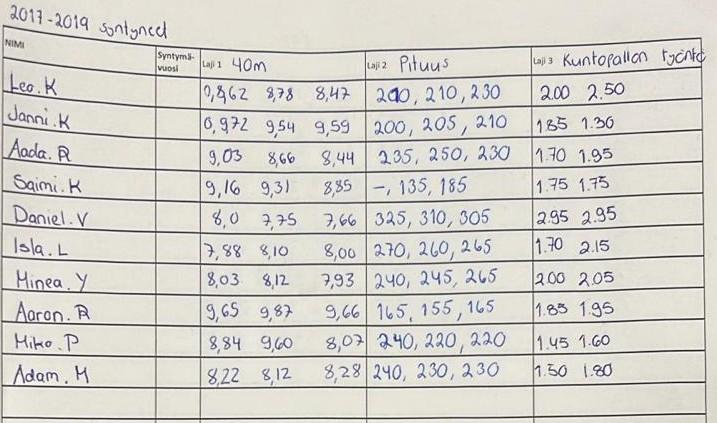 2017-2019 syntyneet
NIMI Syntymä-vuosi Laji 1 40m Laji 2 Pituus Laji 3 Kuntopallon työntö
Leo.K 0,862 8,78 8,47 200, 210, 230 200 2.50
Janni.K 0,972 9,54 9,59 200, 205, 210 1.85 1.30
Aada.R 9,03 8,66 8,44 235, 250, 230 1.70 1.95
Saimi.K 9,16 9,31 8,85 -, 135, 185 1.75 1.75
Daniel.V 8,0 7,75 7,66 325, 310, 305 2.95 2.95
Isla.L 7,88 8,10 8,00 270, 260, 265 1.70 2.15
Minea.Y 8,03 8,12 7,93 240, 245, 265 200 2.05
Aaron.R 9,65 9,87 9,66 165, 155, 165 1.85 1.95
Miko.P 8,84 9,60 8,07 240, 220, 220 1.45 1.60
Adam.M 8,22 8,12 8,28 240, 230, 230 1.50 1.80